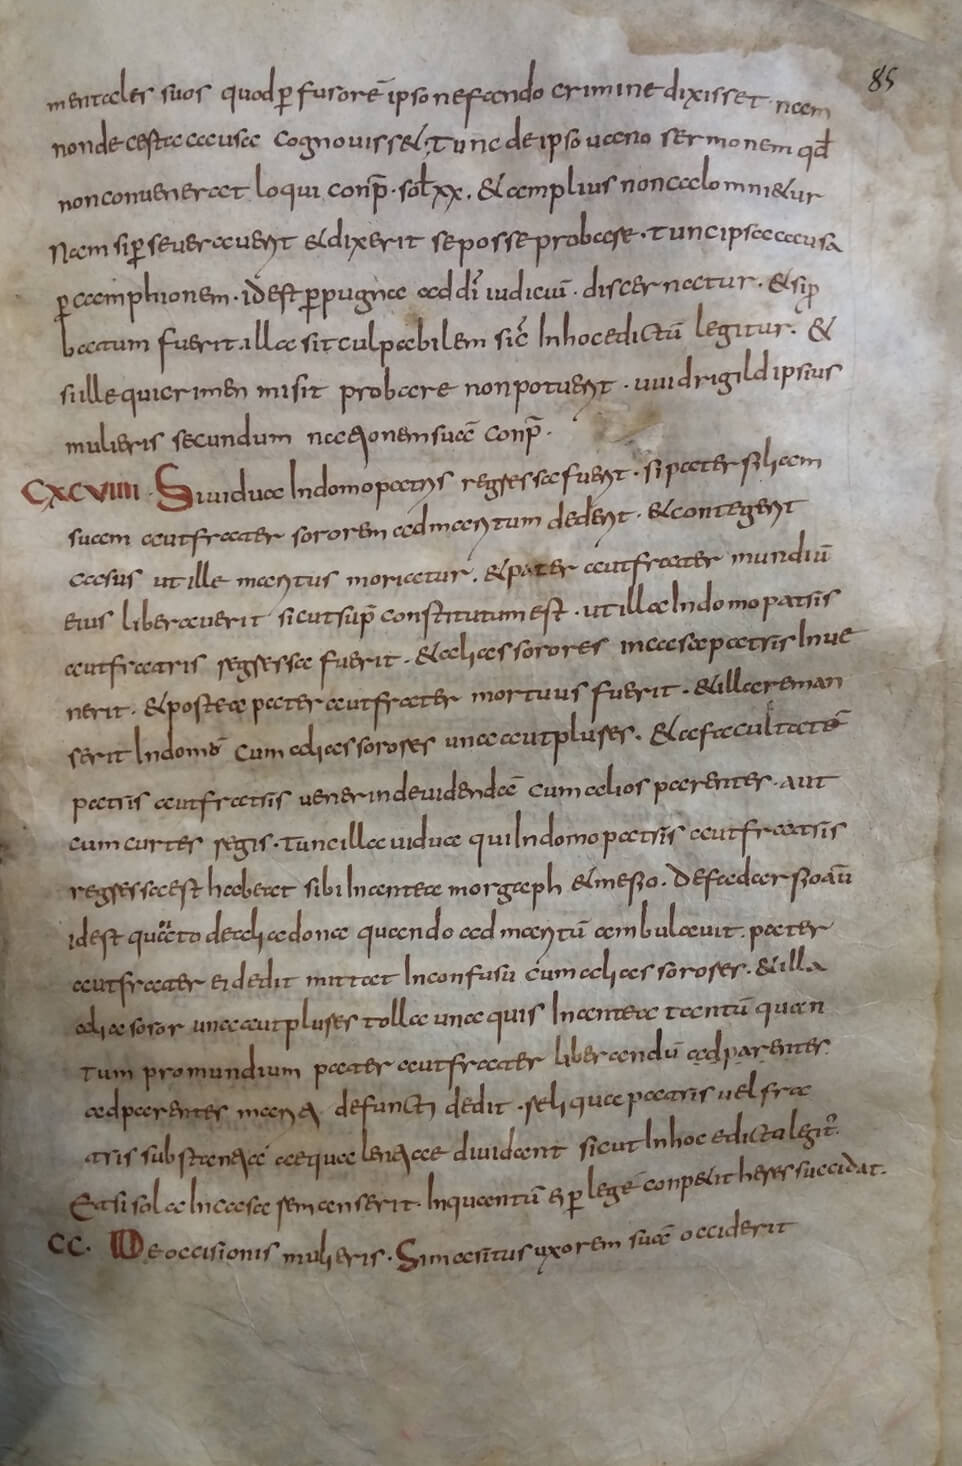 85
mentales suos quod p̱ furorē ipso nefando crimine dixisset nam
non de certa causa cognovisset. Tunc de ipso vano sermonem qđ
non convenerat loqui conp̄. sol̄ xx. & amplius non calomni&ur
Nam si p̱severaverit & dixerit se posse probare. tunc ipsa causa
p̱ camphionem. id est p̱ pugna ad dī iudiciū. discernatur. & si p̱
batum fuerit. illa sit culpabilem sic̄ In hoc edictū legitur. &
si ille qui crimen misit probare non potuerit. uuidrigild ipsius
mulieris secundum nationem suā conp̄.
CXCVIIII. Si vidua In domo patris regressa fuerit. si pater filiam
suam aut frater sororem ad maritum dederit. & contegerit
casus ut ille maritus moriatur. & pater aut frater mundiū
eius liberaverit sicut sup̄ constitutum est. ut illa In domo patris
aut fratris regressa fuerit. & alias sorores in casa patris Inve
nerit. & postea pater aut frater mortuus fuerit. & illa reman
serit In domō cum alias sorores una aut plures. & a facultatē
patris aut fratris venerin devidendā cum alios parentes. aut
cum curtes regis. tunc illa vidua qui In domo patris aut fratris
regressa est habeat sibi In antea morgaph & me&fio. De fadarfio aū
id est quāto de alia dona quando ad maritū ambulavit. pater
aut frater ei dedit mittat In confusu cum alias sorores. & illa
alia soror una aut plures tolla una quis In antea tantū quan
tum pro mundium pater aut frater liberandū ad parentes
ad parentes mariti defuncti dedit. reliqua patris vel fra
tris substantiā aequa lentiae dividant sicut In hoc edicta legit̄.
Et si sola In casa remanserit. In quantū ei p̱ lege conpetit heres succidat.
CC. De occisionis mulieris. Si maritus uxorem suā occiderit